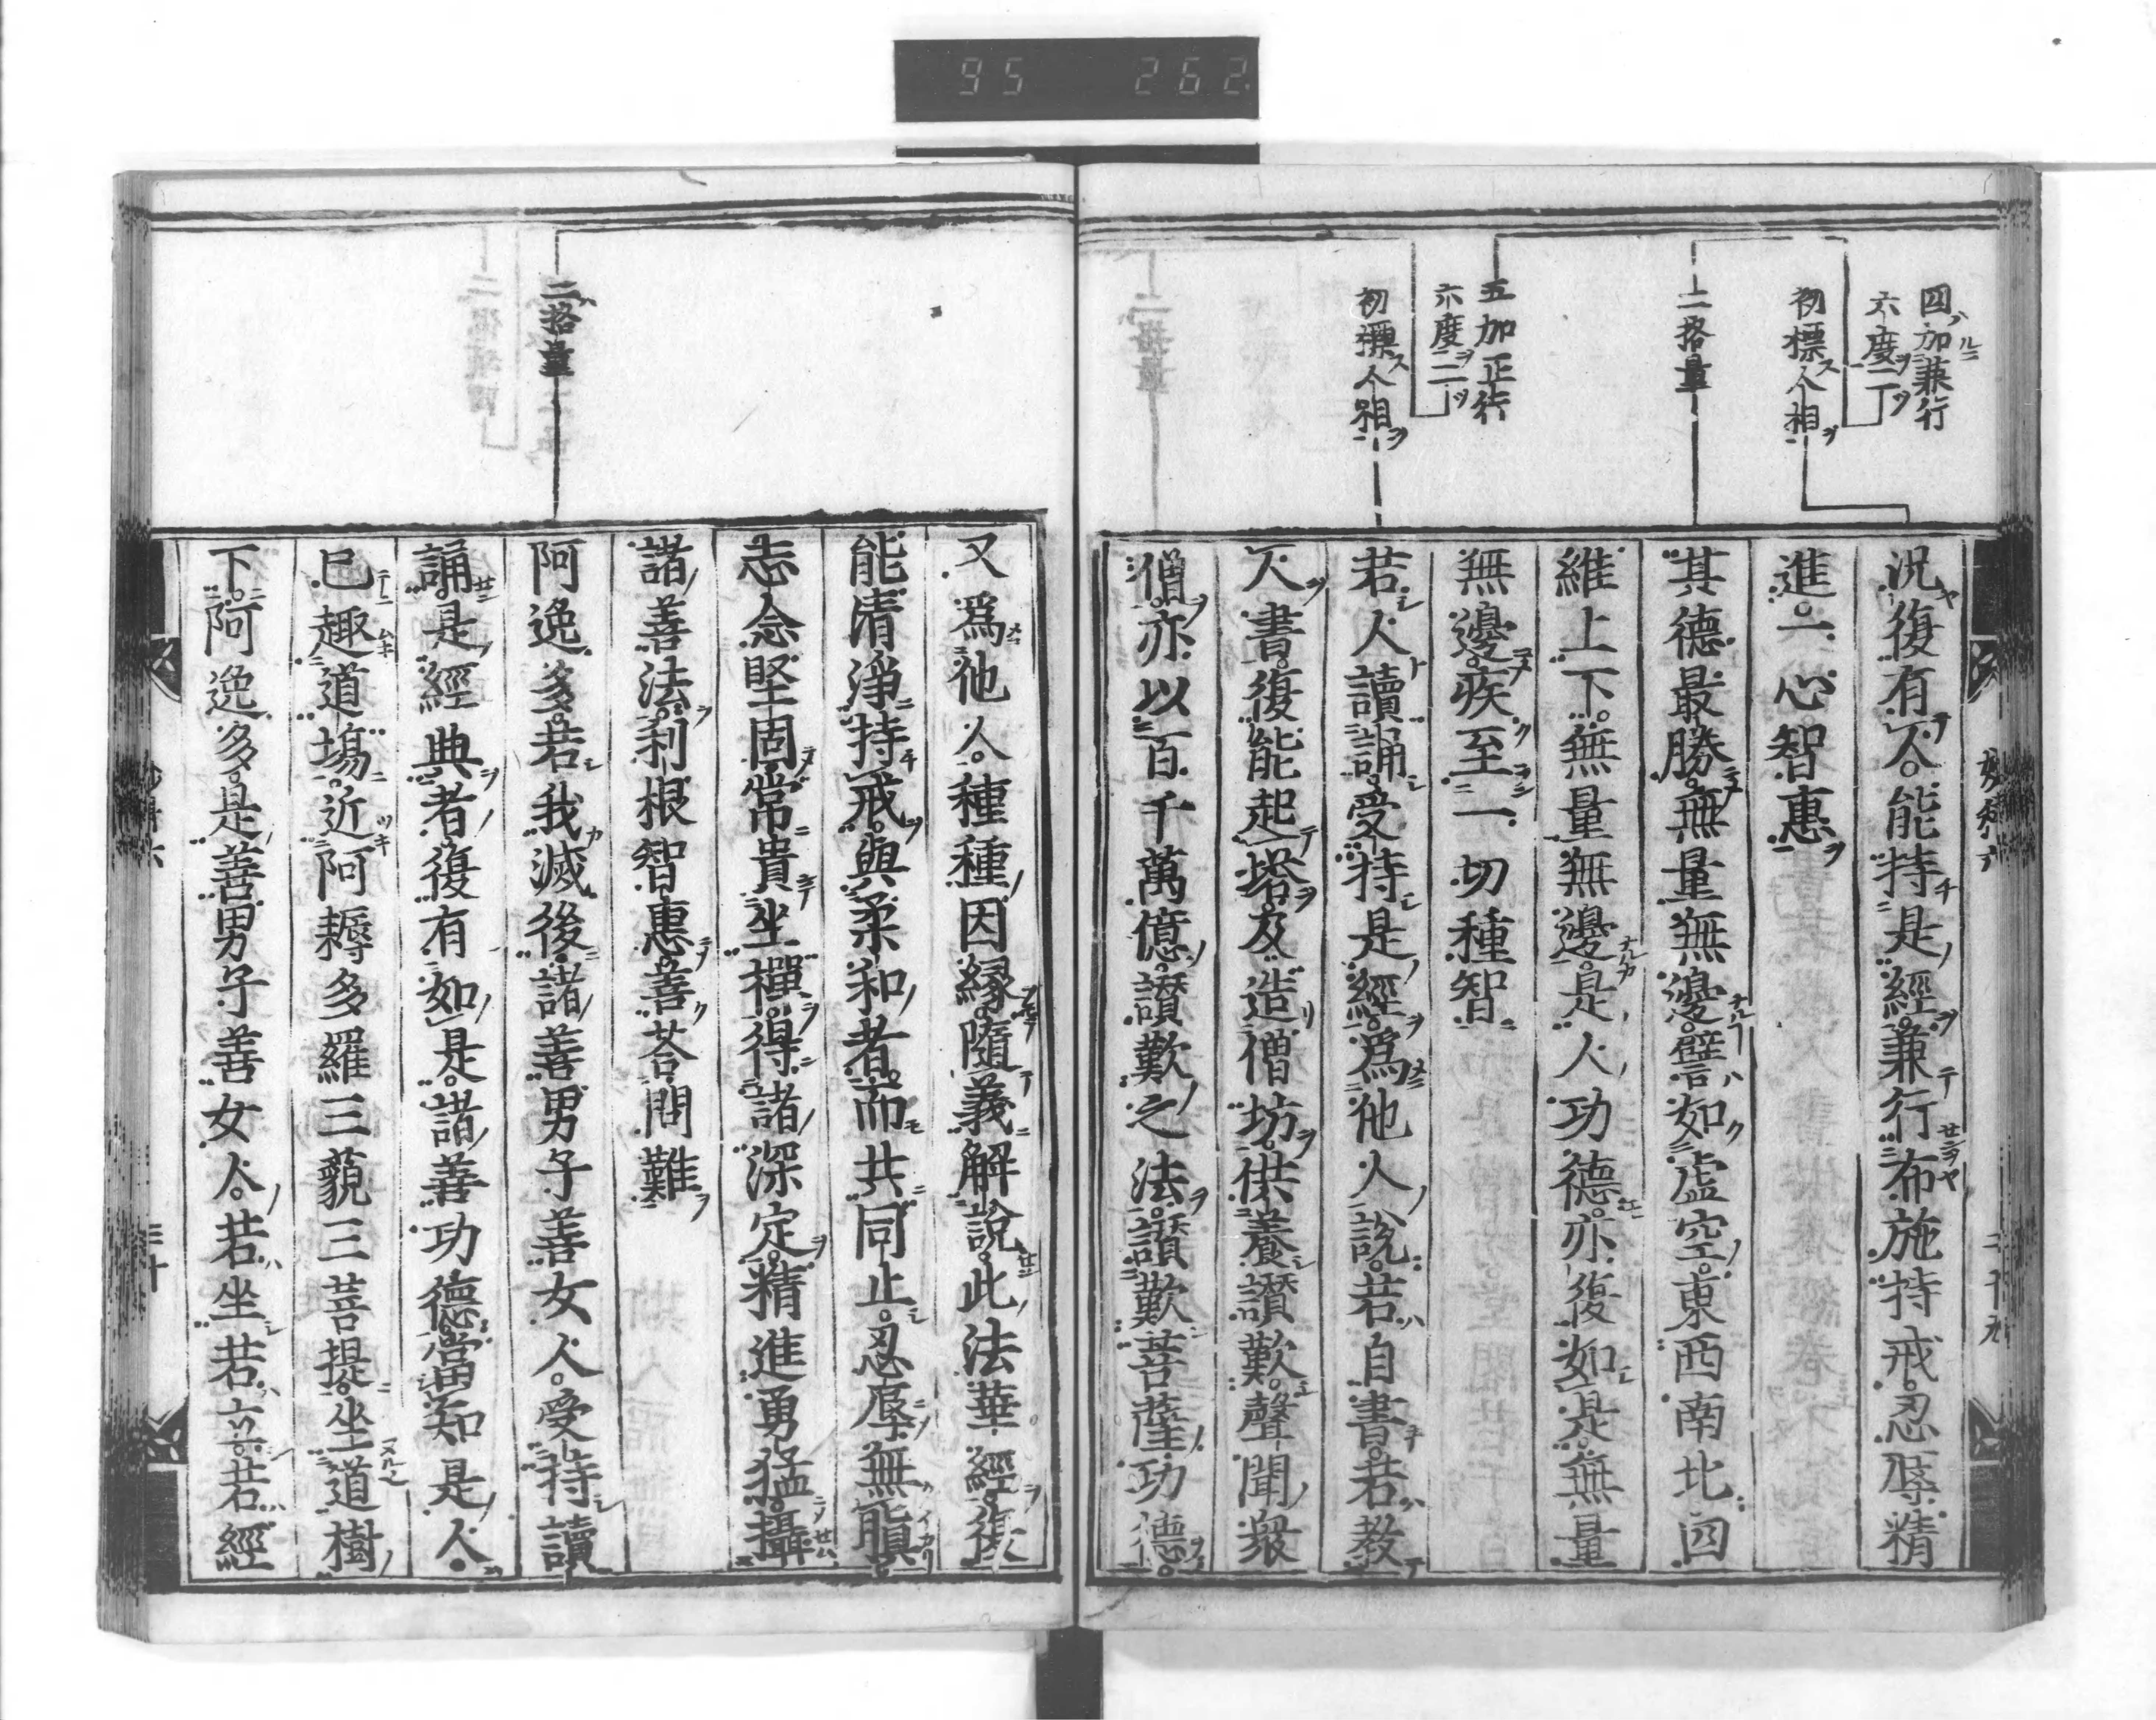 95 262
四加兼行
六度二
初標人相
二挌量
五加正行
六度二
初標人相
況復有人能持是經兼行布施持戒忍辱精
進一心智惠
其德最勝無量無邊譬如虛空東西南北四
維上下無量無邊是人功德亦復如是無量
無邊疾至一切種智
若人讀誦受持是經爲他人說若自書若教
人書復能起塔及造僧坊供養讃歎聲聞衆
僧亦以百千萬億讃歎之法讃歎菩薩功德
二挌量
又爲他人種種因緣隨義解說此法華經復
能清淨持戒與柔和者而共同止忍辱無瞋
志念堅固常貴坐禪得諸深定精進勇猛攝
諸善法利根智惠善荅問難
阿逸多若我滅後諸善男子善女人受持讀
誦是經典者復有如是諸善功德當知是人
已趣道場近阿耨多羅三藐三菩提坐道樹
下阿逸多是善男子善女人若坐若立若經